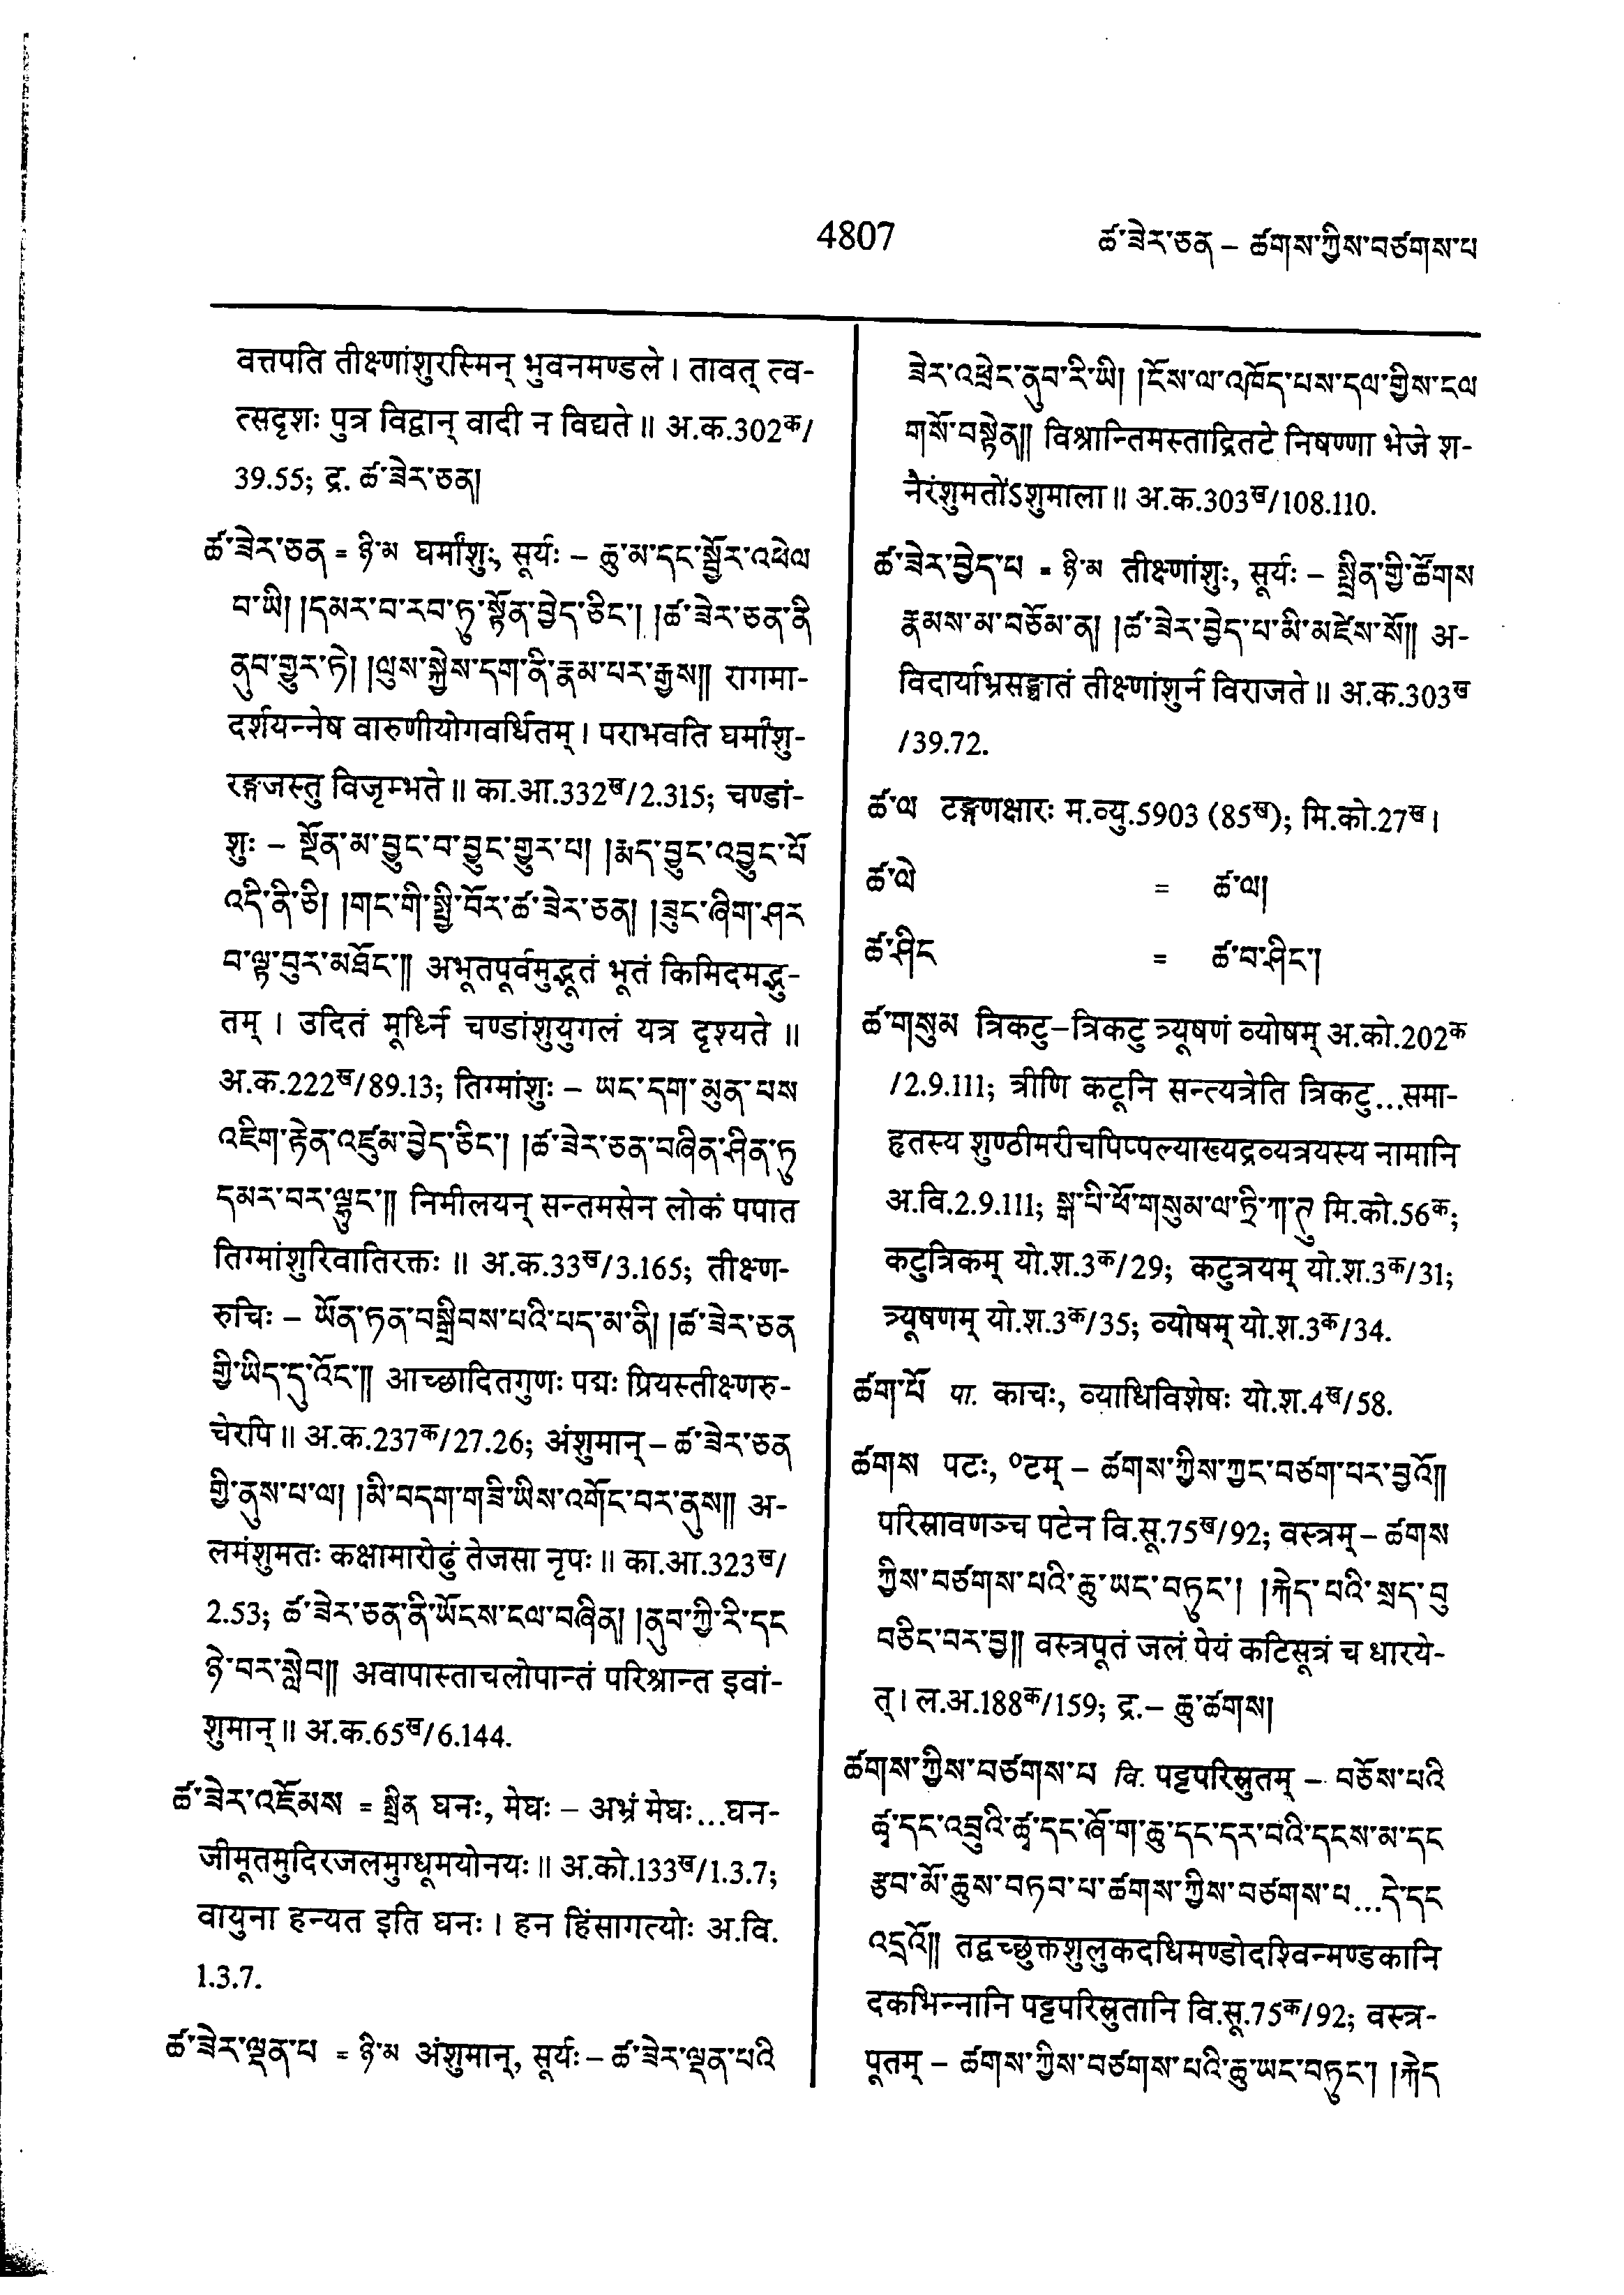 4807
ཚ་ཟེར་ཅན – ཚགས་ཀྱིས་བཙགས་པ
वत्तपति तीक्ष्णांशुरस्मिन् भुवनमण्डले। तावत् त्व-
त्सदृशः पुत्र विद्वान् वादी न विद्यते॥ अ.क.302क/
39.55; द्र. ཚ་ཟེར་ཅན།
ཚ་ཟེར་ཅན = ཉི་མ घर्मांशुः, सूर्यः – ཆུ་མ་དང་སྦྱོར་འཕེལ
བ་ཡི། །དམར་བ་རབ་ཏུ་སྟོན་བྱེད་ཅིང་། །ཚ་ཟེར་ཅན་ནི
ནུབ་གྱུར་ཏེ། །ལུས་སྐྱེས་དག་ནི་རྣམ་པར་རྒྱས།། रागमा-
दर्शयन्नेष वारुणीयोगवर्धितम्। पराभवति घर्मांशु-
रङ्गजस्तु विजृम्भते॥ का.आ.332ख/2.315; चण्डां-
शुः – སྔོན་མ་བྱུང་བ་བྱུང་གྱུར་པ། །རྨད་བྱུང་འབྱུང་པོ
འདི་ནི་ཅི། །གང་གི་སྤྱི་བོར་ཚ་ཟེར་ཅན། །ཟུང་ཞིག་ཤར
བ་ལྟ་བུར་མཐོང་།། अभूतपूर्वमुद्भूतं भूतं किमिदमद्भु-
तम्। उदितं मूर्ध्नि चण्डांशुयुगलं यत्र दृश्यते॥
अ.क.222ख/89.13; तिग्मांशुः – ཡང་དག་མུན་པས
འཇིག་རྟེན་འཛུམ་བྱེད་ཅིང་། །ཚ་ཟེར་ཅན་བཞིན་ཤིན་ཏུ
དམར་བར་ལྷུང་།། निमीलयन् सन्तमसेन लोकं पपात
तिग्मांशुरिवातिरक्तः॥ अ.क.33ख/3.165; तीक्ष्ण-
रुचिः – ཡོན་ཏན་བསྒྲིབས་པའི་པད་མ་ནི། །ཚ་ཟེར་ཅན
གྱི་ཡིད་དུ་འོང་།། आच्छादितगुणः पद्मः प्रियस्तीक्ष्णरु-
चेरपि॥ अ.क.237क/27.26; अंशुमान् – ཚ་ཟེར་ཅན
གྱི་ནུས་པ་ལ། །མི་བདག་གཟི་ཡིས་འགོང་བར་ནུས།། अ-
लमंशुमतः कक्षामारोढुं तेजसा नृपः॥ का.आ.323ख/
2.53; ཚ་ཟེར་ཅན་ནི་ཡོངས་ངལ་བཞིན། །ནུབ་ཀྱི་རི་དང
ཉེ་བར་སླེབ།། अवापास्ताचलोपान्तं परिश्रान्त इवां-
शुमान्॥ अ.क.65ख/6.144.
ཚ་ཟེར་འཇོམས = སྤྲིན घनः, मेघः – अभ्रं मेघः...घन-
जीमूतमुदिरजलमुग्धूमयोनयः॥ अ.को.133ख/1.3.7;
वायुना हन्यत इति घनः। हन हिंसागत्योः अ.वि.
1.3.7.
ཚ་ཟེར་ལྡན་པ = ཉི་མ अंशुमान्, सूर्यः – ཚ་ཟེར་ལྡན་པའི
ཟེར་འཕྲེང་ནུབ་རི་ཡི། །ངོས་ལ་འཁོད་པས་དལ་གྱིས་ངལ
གསོ་བསྟེན།། विश्रान्तिमस्ताद्रितटे निषण्णा भेजे श-
नैरंशुमतोंऽशुमाला॥ अ.क.303ख/108.110.
ཚ་ཟེར་བྱེད་པ = ཉི་མ तीक्ष्णांशुः, सूर्यः – སྤྲིན་གྱི་ཚོགས
རྣམས་མ་བཅོམ་ན། །ཚ་ཟེར་བྱེད་པ་མི་མཛེས་སོ།། अ-
विदार्याभ्रसङ्घातं तीक्ष्णांशुर्न विराजते॥ अ.क.303ख
/39.72.
ཚ་ལ टङ्कणक्षारः म.व्यु.5903 (85ख); मि.को.27ख।
ཚ་ལེ = ཚ་ལ།
ཚ་ཤིང = ཚ་བ་ཤིང་།
ཚ་གསུམ त्रिकटु–त्रिकटु त्र्यूषणं व्योषम् अ.को.202क
/2.9.111; त्रीणि कटूनि सन्त्यत्रेति त्रिकटु...समा-
हृतस्य शुण्ठीमरीचपिप्पल्याख्यद्रव्यत्रयस्य नामानि
अ.वि.2.9.111; སྒ་པི་ཕོ་གསུམ་ལ་ཏྲི་ཀ་ཊུ मि.को.56क;
कटुत्रिकम् यो.श.3क/29; कटुत्रयम् यो.श.3क/31;
त्र्यूषणम् यो.श.3क/35; व्योषम् यो.श.3क/34.
ཚག་པོ पा. काचः, व्याधिविशेषः यो.श.4ख/58.
ཚགས पटः, ०टम् – ཚགས་ཀྱིས་ཀྱང་བཙག་པར་བྱའོ།།
परिस्रावणञ्च पटेन वि.सू.75ख/92; वस्त्रम् – ཚགས
ཀྱིས་བཙགས་པའི་ཆུ་ཡང་བཏུང་། །རྐེད་པའི་སྲད་བུ
བཅིང་བར་བྱ།། वस्त्रपूतं जलं पेयं कटिसूत्रं च धारये-
त्। ल.अ.188क/159; द्र.– ཆུ་ཚགས།
ཚགས་ཀྱིས་བཙགས་པ वि. पट्टपरिस्रुतम् – བཅོས་པའི
ཚྭ་དང་འབྲུའི་ཚྭ་དང་ཞོ་ག་ཆུ་དང་དར་བའི་དངས་མ་དང
རྩབ་མོ་ཆུས་བཏབ་པ་ཚགས་ཀྱིས་བཙགས་པ...དེ་དང
འདྲའོ།། तद्वच्छुक्तशुलुकदधिमण्डोदश्विन्मण्डकानि
दकभिन्नानि पट्टपरिस्रुतानि वि.सू.75क/92; वस्त्र-
पूतम् – ཚགས་ཀྱིས་བཙགས་པའི་ཆུ་ཡང་བཏུང་། །རྐེད